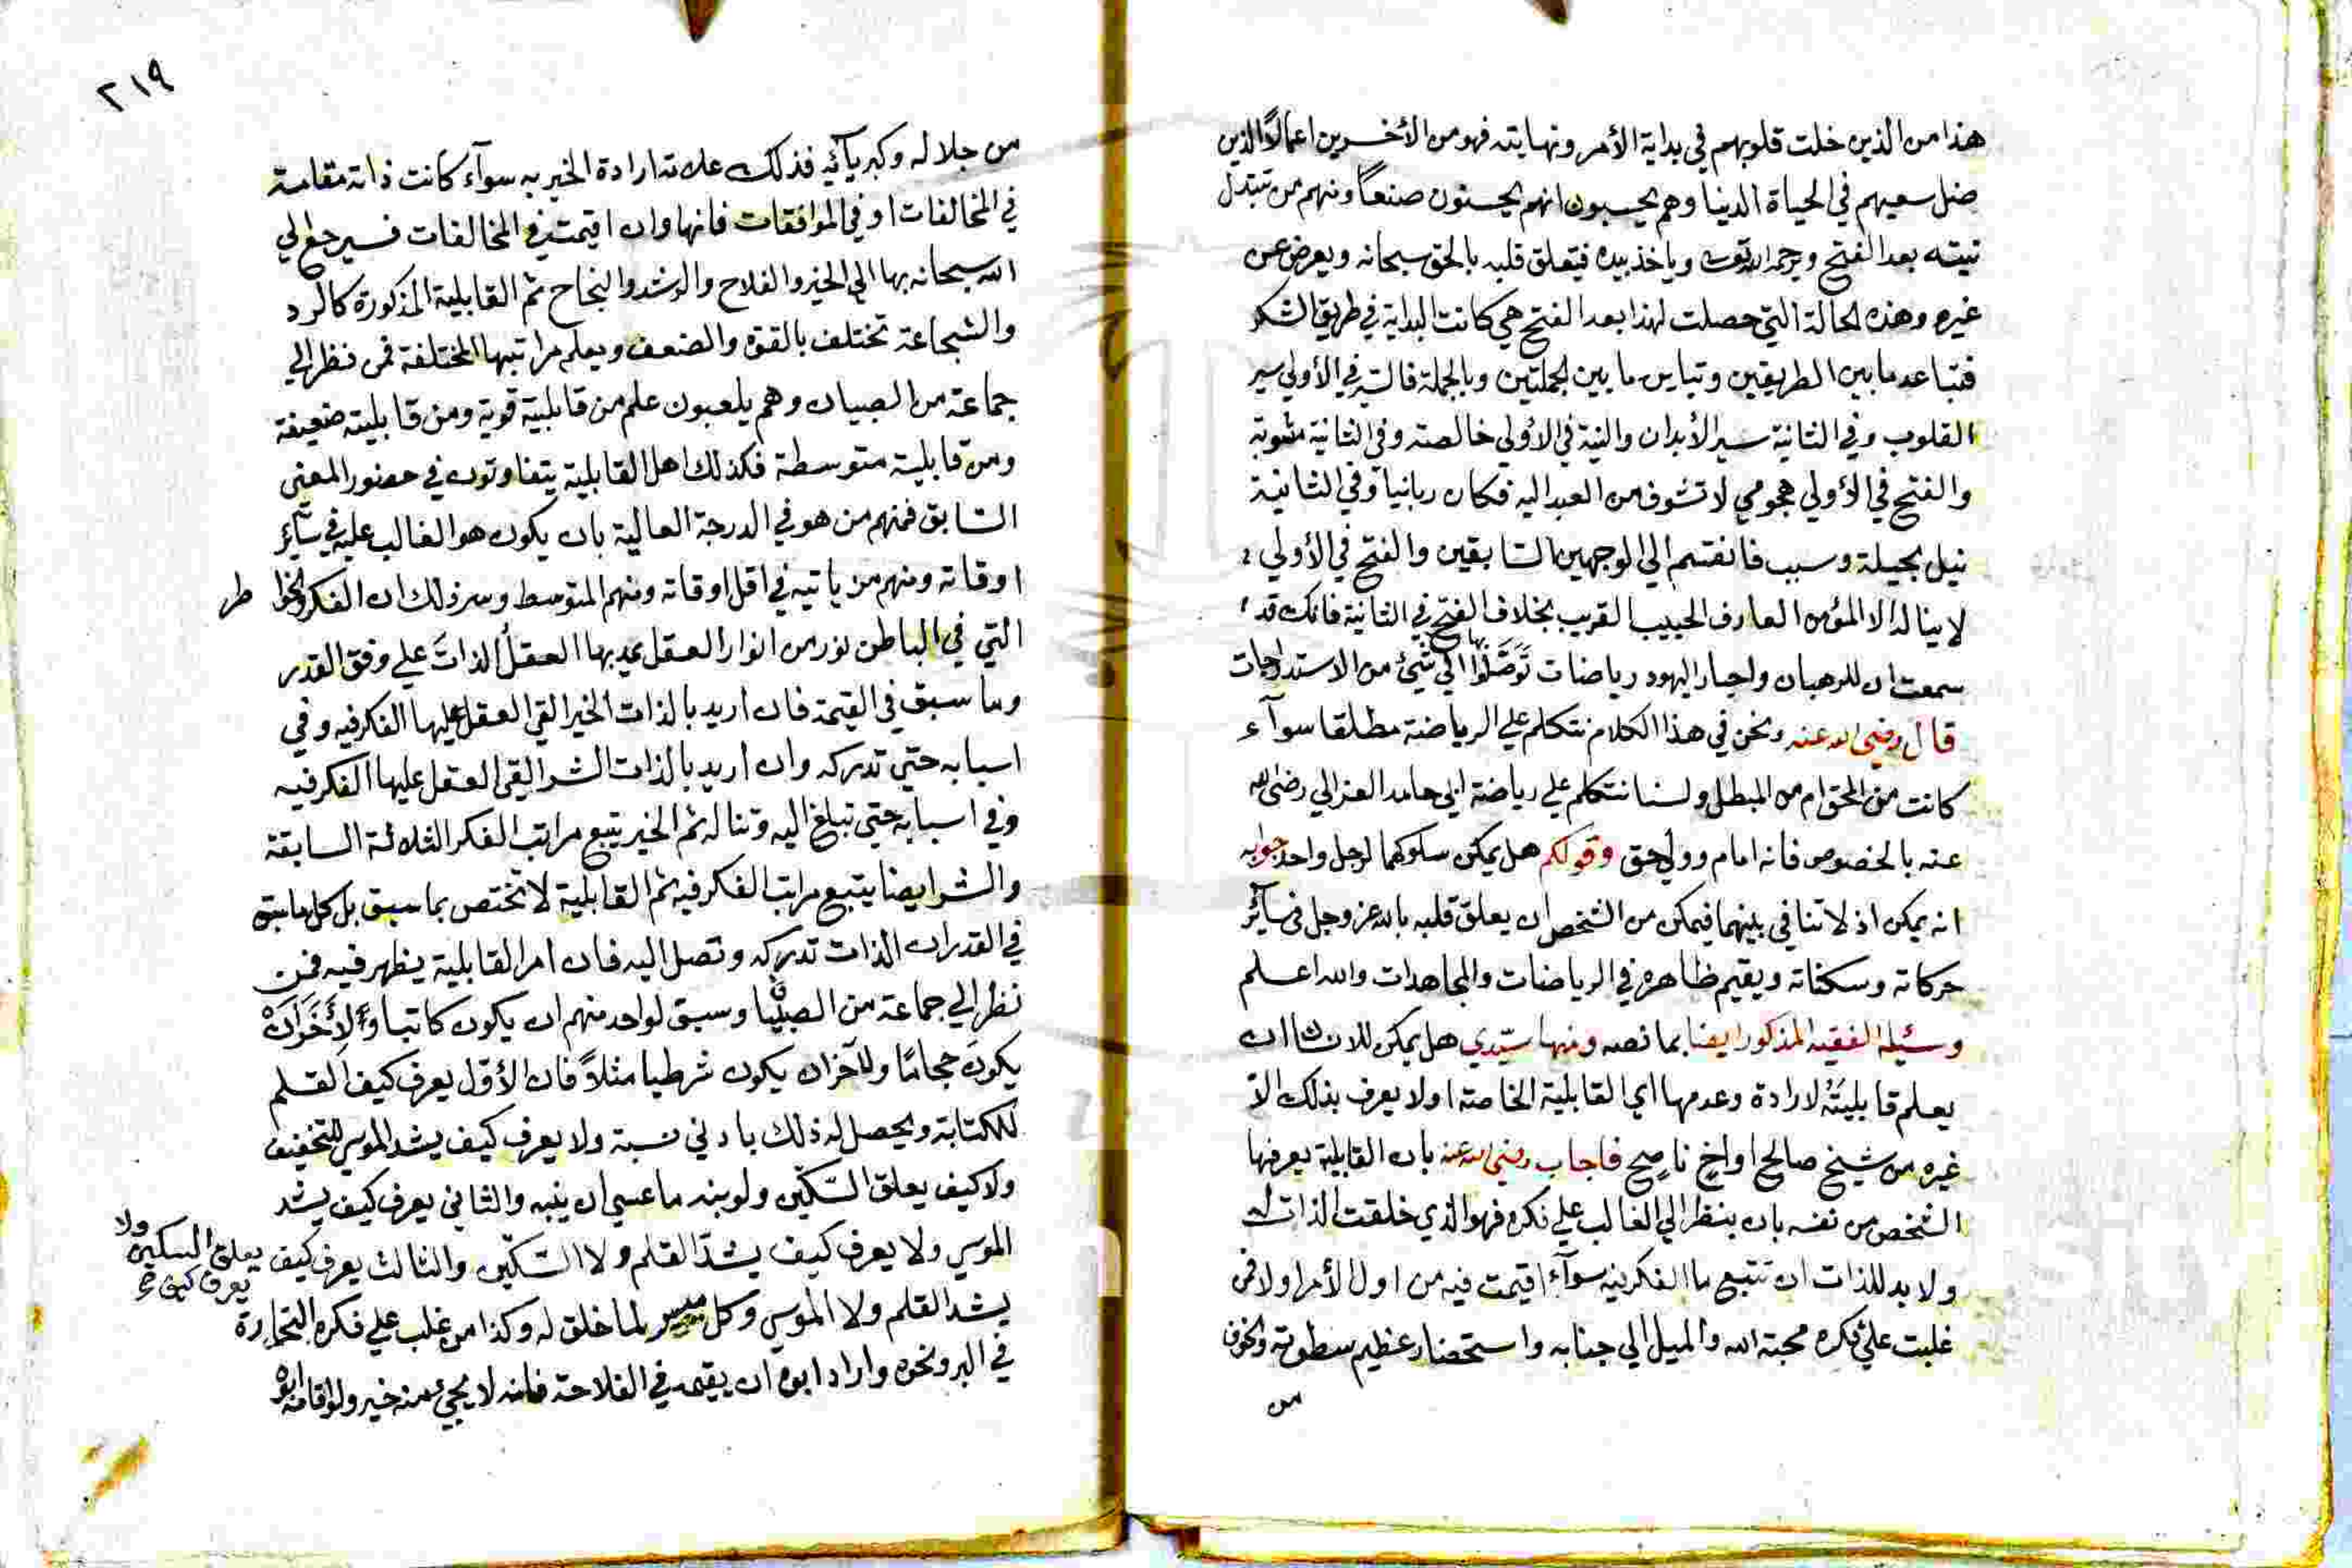 هذا من الذين خلت قلوبهم في بداية الأمر ونهايته فهو من الأخسرين اعمالاً الذين
ضل سعيهم في الحياة الدنيا وهم يحسبون انهم يحسنون صنعاً ومنهم من تتبدل
نيته بعد الفتح ويرحمه الله تعالى وياخذ بيده فيتعلق قلبه بالحق سبحانه ويعرض عن
غيره وهذه الحالة التي حصلت لهذا بعد الفتح هي كانت البداية في طريق الشكر
فتباعد ما بين الطريقين وتباين ما بين الجملتين وبالجملة فالسير في الأولي سير
القلوب وفي الثانية سير الأبدان والنية في الأولي خالصة وفي الثانية مشوبة
والفتح في الأولي هجومي لا تشوف من العبد اليه فكان ربانيا وفي الثانية
نيل بحيلة وسبب فانقسم الي الوجهين السابقين والفتح في الأولي
لا يناله الا المؤمن العارف الحبيب القريب بخلاف الفتح في الثانية فانك قد
سمعت ان للرهبان واحبار اليهود رياضات توصلوا بها الي شيئ من الاستدراجات
قال رضي الله عنه ونحن في هذا الكلام نتكلم علي الرياضة مطلقا سوآء
كانت من المحق ام من المبطل ولسنا نتكلم علي رياضة ابي حامد الغزالي رضي الله
عنه بالخصوص فانه امام وولي حق وقولكم هل يمكن سلوكهما لرجل واحد جوابه
انه يمكن اذ لا تنافي بينهما فيمكن من الشخص ان يعلق قلبه بالله عز وجل في سآئر
حركاته وسكناته ويقيم ظاهره في الرياضات والمجاهدات والله اعلم
وسئله الفقيه المذكور ايضا بما نصه ومنها سيّدي هل يمكن للانسان ان
يعلم قابليته لارادة وعدمها اي القابلية الخاصة او لا يعرف بذلك الا
غيره من شيخ صالح او اخ ناصح فاجاب رضي الله عنه بان القابلية يعرفها
الشخص من نفسه بان ينظر الي الغالب علي فكره فهو الذي خلقت الذات له
ولا بد للذات ان تتبع ما الفكر فيه سوآء اقيمت فيه من اول الأمر او لا فمن
غلبت علي فكره محبة الله والميل الي جنابه واستحضار عظيم سطوته والخوف
من
٢١٩
من جلاله وكبريآئه فذلك علامة ارادة الخير به سوآء كانت ذاته مقامة
في المخالفات او في الموافقات فانها وان اقيمت في المخالفات فسيرجع الي
الله سبحانه بها الي الخير والفلاح والرشد والنجاح ثم القابلية المذكورة كالرد
والشجاعة تختلف بالقوة والضعف ويعلم مراتبها المختلفة فمن نظر الي
جماعة من الصبيان وهم يلعبون علم من قابلية قوية ومن قابليته ضعيفة
ومن قابلية متوسطة فكذلك اهل القابلية يتفاوتون في حضور المعني
السابق فمنهم من هو في الدرجة العالية بان يكون هو الغالب عليه في سآئر
اوقاته ومنهم من ياتيه في اقل اوقاته ومنهم المتوسط وسر ذلك ان الفكر والخوا طر
التي في الباطن نور من انوار العقل يمد بها العقلُ الذاتَ علي وفق القدر
وما سبق في القسمة فان اريد بالذات الخير القي العقل عليها الفكر فيه وفي
اسبابه حتي تدركه وان اريد بالذات الشر القي العقل عليها الفكر فيه
وفي اسبابه حتي تبلغ اليه وتناله ثم الخير يتبع مراتب الفكر الثلاثة السابقة
والشر ايضا يتبع مراتب الفكر فيه ثم القابلية لا تختص بما سبق بل كل ما سبق
في القدر ان الذات تدركه وتصل اليه فان امر القابلية يظهر فيه فمن
نظر الي جماعة من الصبيان وسبق لواحد منهم ان يكون كاتبا ولأخر ان
يكون حجاما ولآخر ان يكون شرطيا مثلاً فان الأول يعرف كيف القلم
للكتابة ويحصل له ذلك بادني نسبة ولا يعرف كيف يشد الموسي للتخفيف
ولا كيف يعلق السكّين ولو نبه ما عسي ان ينبه والثاني يعرف كيف يشد
الموسي ولا يعرف كيف يشدّ القلم ولا السّكّين والثالث يعرف كيف يعلق السكين ولا
يعرف كيف
يشد القلم ولا الموسي وكل ميسر لما خلق له وكذا من غلب علي فكره التجارة
في البر ونحوه واراد ابوه ان يقيمه في الفلاحة فانه لا يجيئ منه خير ولو اقامه ابوه